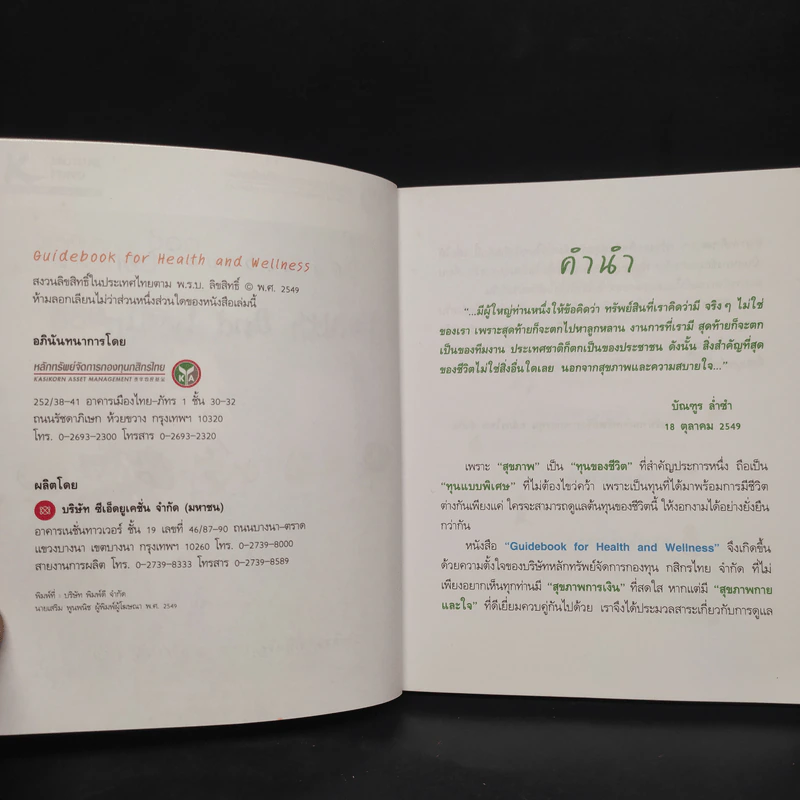 Guidebook for Health and Wellness
สงวนลิขสิทธิ์ในประเทศไทยตาม พ.ร.บ. ลิขสิทธิ์ © พ.ศ. 2549
ห้ามลอกเลียนไม่ว่าส่วนหนึ่งส่วนใดของหนังสือเล่มนี้
อภินันทนาการโดย
หลักทรัพย์จัดการกองทุนกสิกรไทย
KASIKORN ASSET MANAGEMENT
KA
252/38-41 อาคารเมืองไทย-ภัทร 1 ชั้น 30-32
ถนนรัชดาภิเษก ห้วยขวาง กรุงเทพฯ 10320
โทร. 0-2693-2300 โทรสาร 0-2693-2320
ผลิตโดย
บริษัท ซีเอ็ดยูเคชั่น จำกัด (มหาชน)
อาคารเนชั่นทาวเวอร์ ชั้น 19 เลขที่ 46/87-90 ถนนบางนา-ตราด
แขวงบางนา เขตบางนา กรุงเทพฯ 10260 โทร. 0-2739-8000
สายงานการผลิต โทร. 0-2739-8333 โทรสาร 0-2739-8589
พิมพ์ที่ : บริษัท พิมพ์ดี จำกัด
นายเสริม พูนพนิช ผู้พิมพ์ผู้โฆษณา พ.ศ. 2549
คำนำ
"...มีผู้ใหญ่ท่านหนึ่งให้ข้อคิดว่า ทรัพย์สินที่เราคิดว่ามี จริงๆ ไม่ใช่
ของเรา เพราะสุดท้ายก็จะตกไปหาลูกหลาน งานการที่เรามี สุดท้ายก็จะตก
เป็นของทีมงาน ประเทศชาติก็ตกเป็นของประชาชน ดังนั้น สิ่งสำคัญที่สุด
ของชีวิตไม่ใช่สิ่งอื่นใดเลย นอกจากสุขภาพและความสบายใจ..."
บัณฑูร ล่ำซำ
18 ตุลาคม 2549
เพราะ "สุขภาพ" เป็น "ทุนของชีวิต" ที่สำคัญประการหนึ่ง ถือเป็น
"ทุนแบบพิเศษ" ที่ไม่ต้องไขว่คว้า เพราะเป็นทุนที่ได้มาพร้อมการมีชีวิต
ต่างกันเพียงแค่ ใครจะสามารถดูแลต้นทุนของชีวิตนี้ ให้งอกงามได้อย่างยั่งยืน
กว่ากัน
หนังสือ "Guidebook for Health and Wellness" จึงเกิดขึ้น
ด้วยความตั้งใจของบริษัทหลักทรัพย์จัดการกองทุน กสิกรไทย จำกัด ที่ไม่
เพียงอยากเห็นทุกท่านมี "สุขภาพการเงิน" ที่สดใส หากแต่มี "สุขภาพกาย
และใจ" ที่ดีเยี่ยมควบคู่กันไปด้วย เราจึงได้ประมวลสาระเกี่ยวกับการดูแล